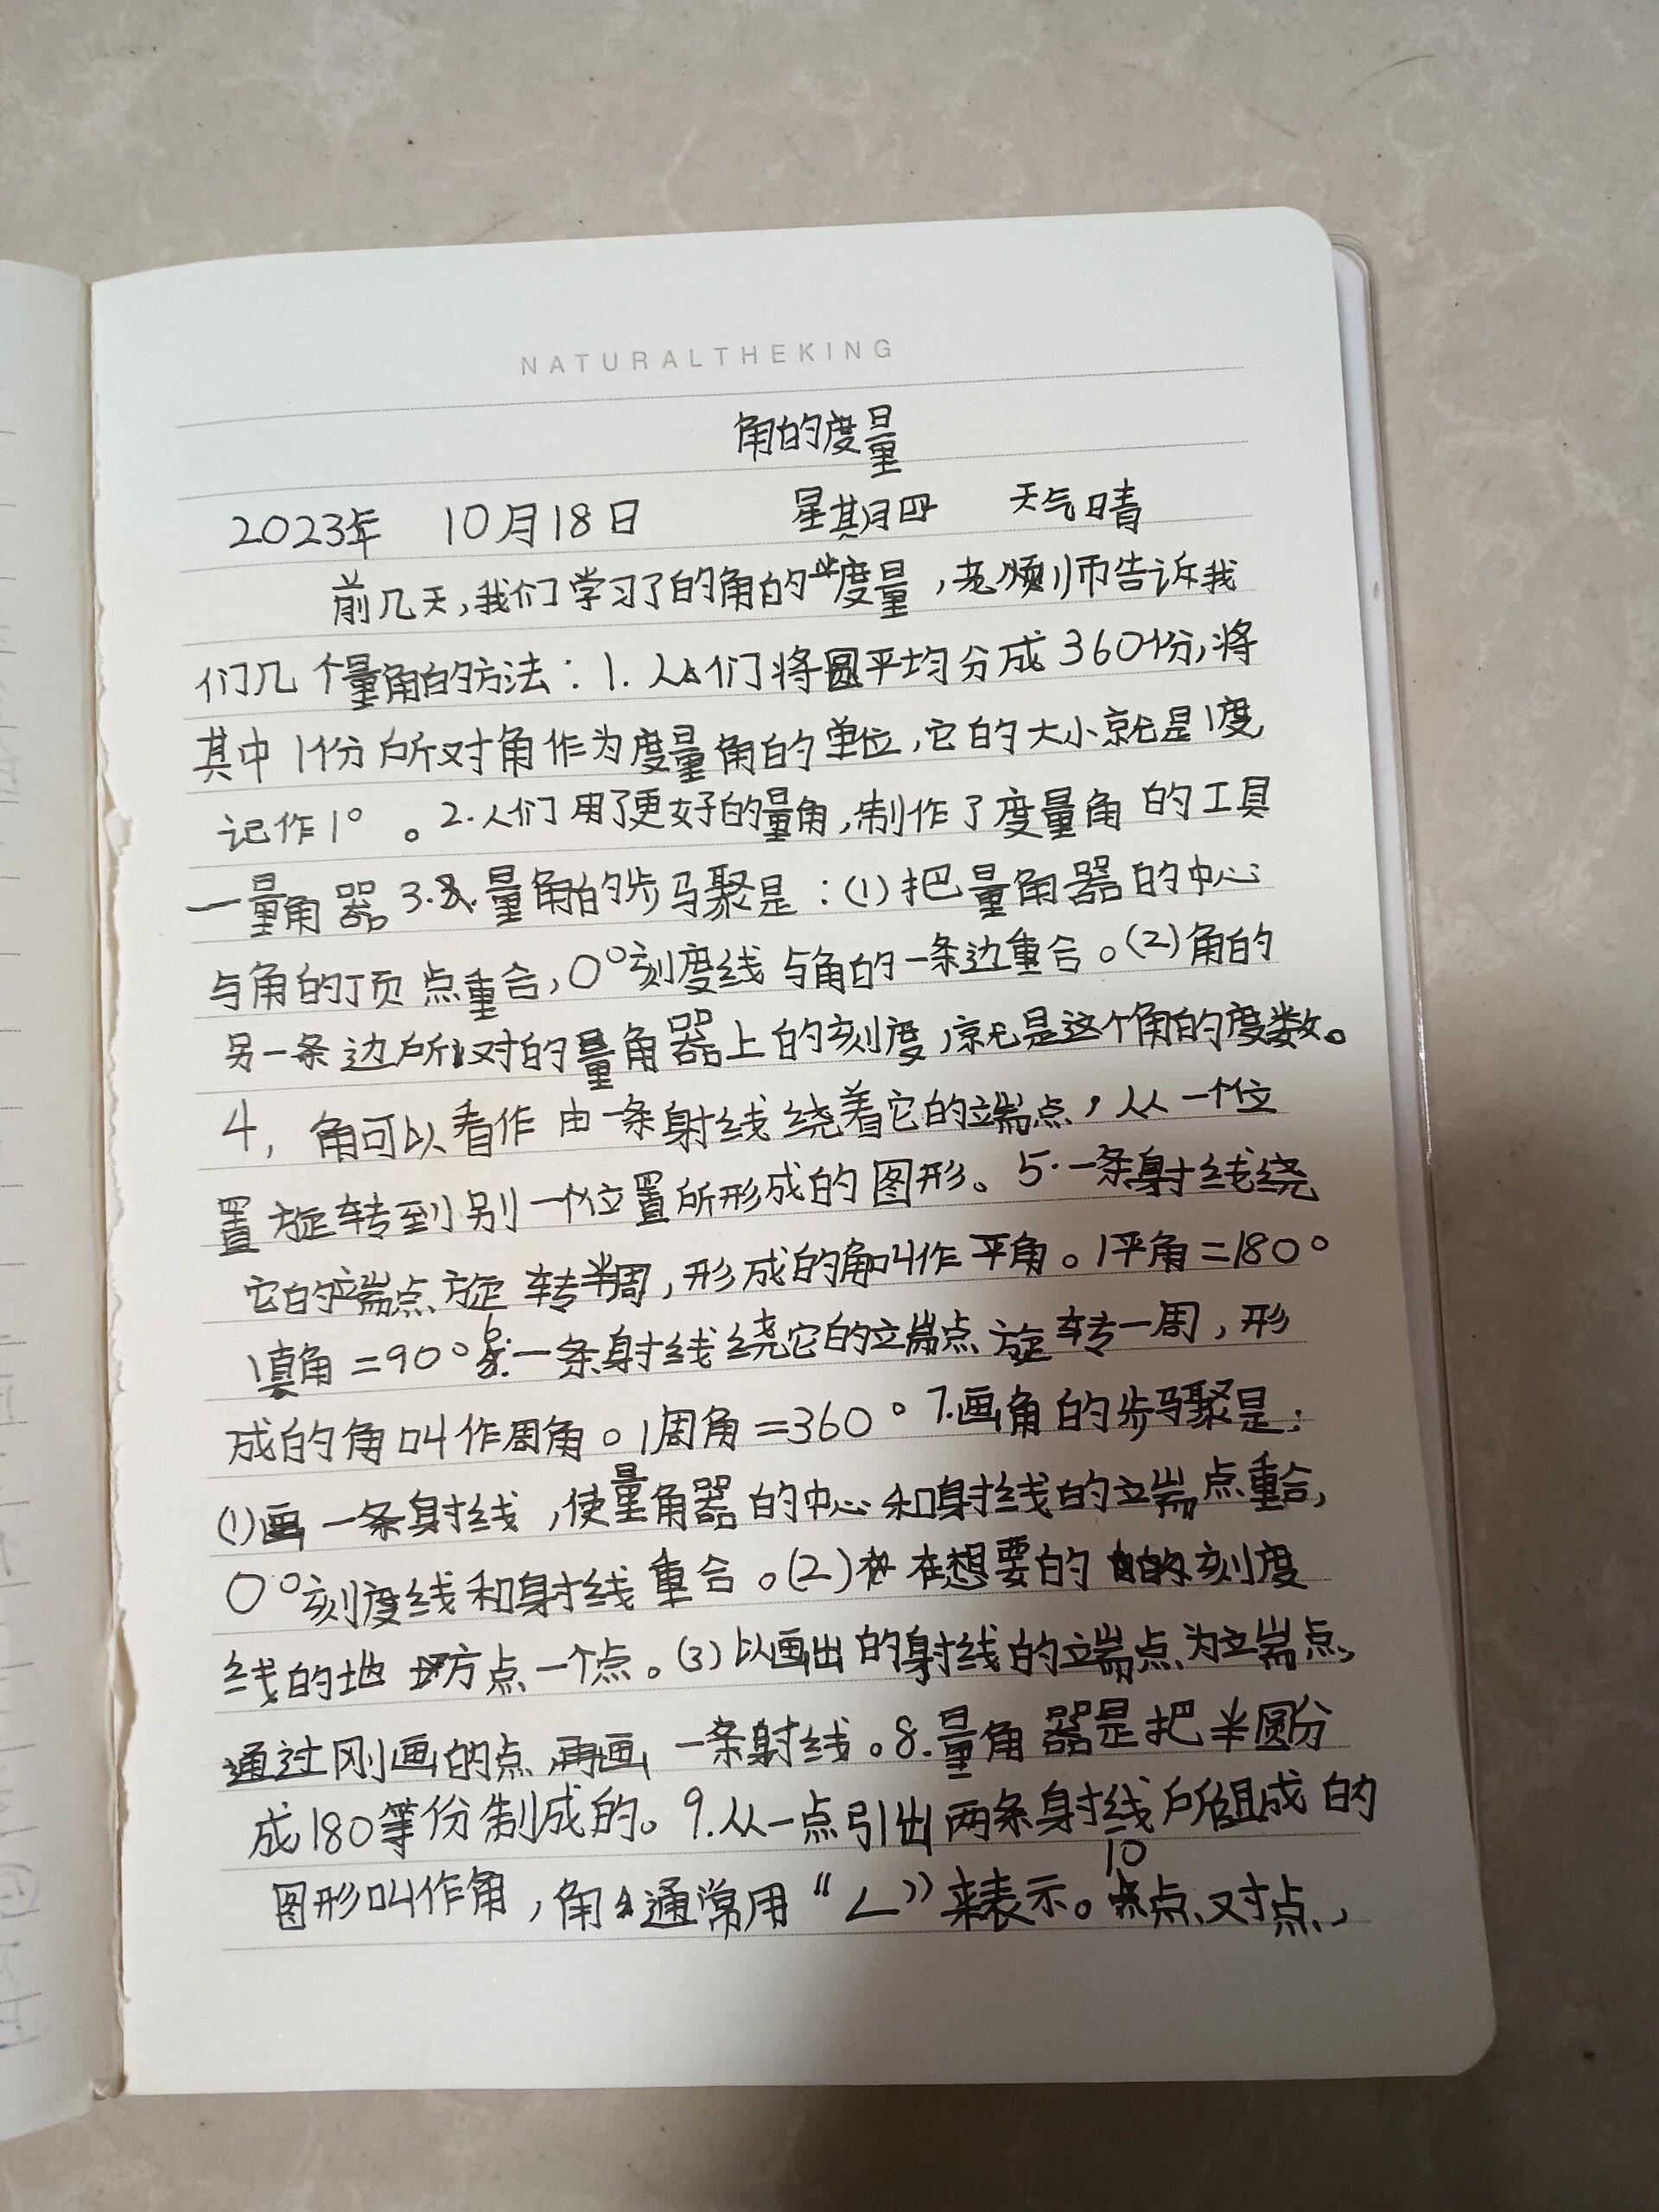 NATURALTHEKING
角的度量
2023年 10月18日 星期四 天气晴
前几天,我们学习了的角的度量,老师告诉我
们几个量角的方法:1.人们将圆平均分成360份,将
其中1份所对角作为度量角的单位,它的大小就是1度,
记作1°。2.人们用了更好的量角,制作了度量角的工具
一量角器。3.量角的步骤是:(1)把量角器的中心
与角的顶点重合,0°刻度线与角的一条边重合。(2)角的
另一条边所对的量角器上的刻度,就是这个角的度数。
4,角可以看作由一条射线绕着它的端点,从一个位
置旋转到别一个位置所形成的图形。5.一条射线绕
它的端点旋转半周,形成的角叫作平角。1平角=180°
1真角=90°6.一条射线绕它的端点旋转一周,形
成的角叫作周角。1周角=360°7.画角的步骤是:
(1)画一条射线,使量角器的中心和射线的端点重合,
0°刻度线和射线重合。(2)在想要的刻度
线的地方点一个点。(3)以画出的射线的端点为端点,
通过刚画的点再画一条射线。8.量角器是把半圆分
成180等份制成的。9.从一点引出两条射线所组成的
图形叫作角,角通常用“∠”来表示。10点对点,